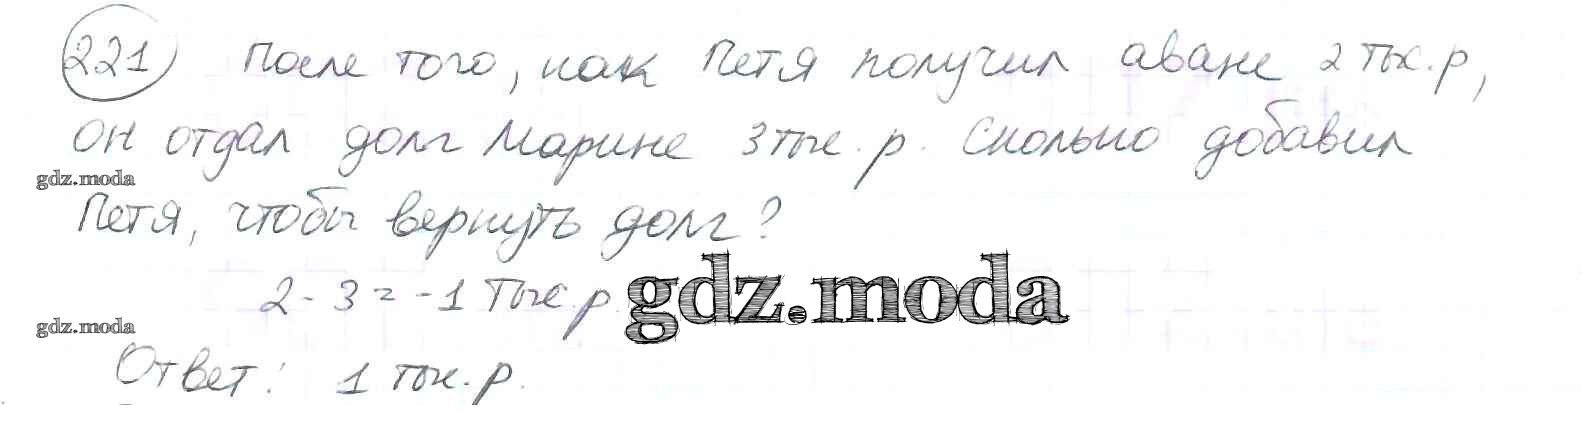 221 После того, как Петя получил аванс 2 тыс. р,
он отдал долг Марине 3 тыс. р. Сколько добавил
gdz.moda
Петя, чтобы вернуть долг?
2 - 3 = -1 тыс. р.
gdz.moda
gdz.moda
Ответ: 1 тыс. р.